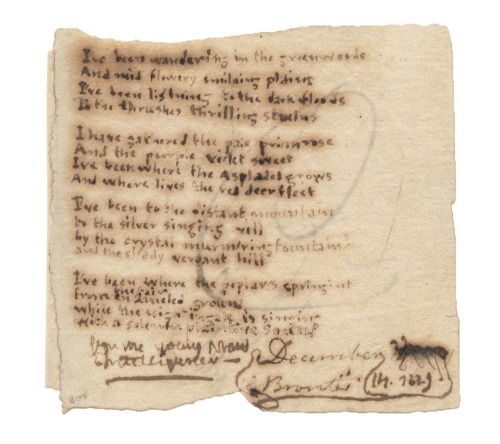 I've been wandering in the greenwoods
And mid flowery smilaing plains
I've been listning to the dark floods
To the thrushes thrilling strains

I have gathered the pale primrose
And the purple violet sweet
I've been where the Asphadel grows
And where lives the red deer fleet

I've been to the distant mountain
to the silver singing rill
by the crystal murmoring fountain
and the shady verdant hill

I've been where the poplar is springing
from the fair enameled ground
while the nightingale is singing
with a solemn plaintive sound
December
Bronte